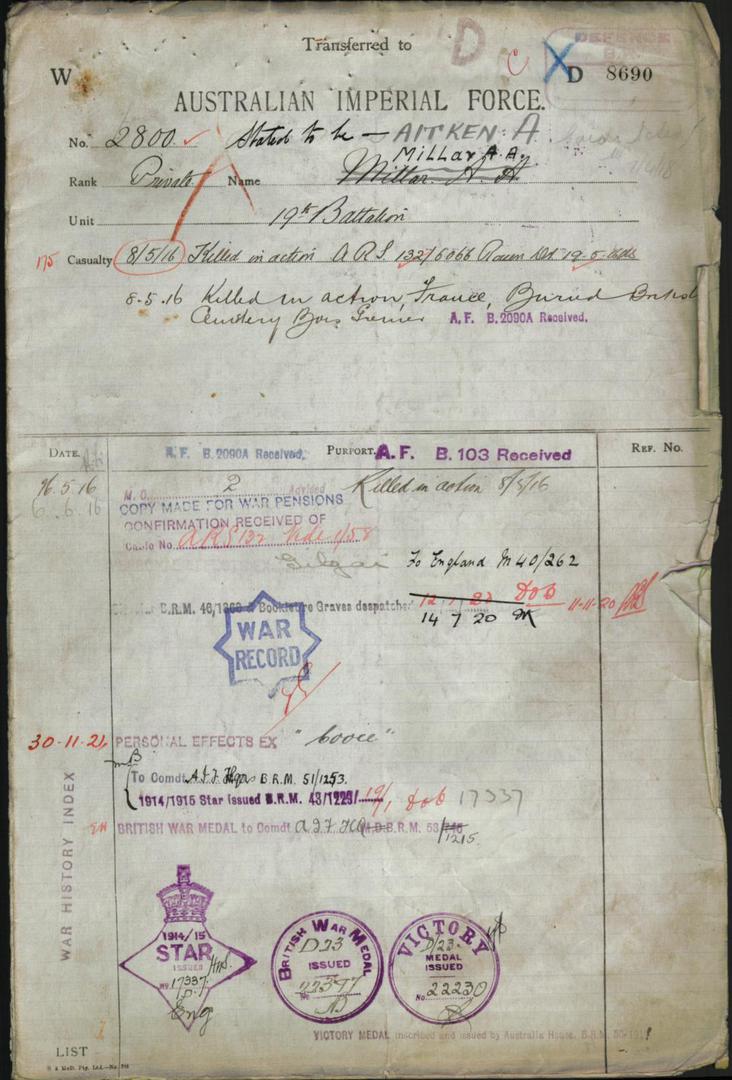 Transferred to
D
C
X
DEFENCE
W
D 8690
AUSTRALIAN IMPERIAL FORCE.
No. 2800. Stated to be — AITKEN A
MILLAR A.A.
Rank Private Name Millar. A. A.
Unit 19th Battalion
175 Casualty 8/5/16 Killed in action A R S 132/6066 Rouen
8.5.16 Killed in action, France, Buried British
Cemetery Bois Grenier A.F. B.2090A Received.
DATE. A.F. B.2090A Received. PURPORT. A.F. B.103 Received REF. No.
26.5.16 M.C. 2 Advised Killed in action 8/5/16
6.6.16 COPY MADE FOR WAR PENSIONS
CONFIRMATION RECEIVED OF
Cable No. ARS132
To England M 40/262
B.R.M. 46/ Booklet re Graves despatched 11-11-20
14 7 20
WAR
RECORD
30-11-21 PERSONAL EFFECTS EX "
To Comdt. A.I.F. Hqrs B.R.M. 51/1253.
1914/1915 Star issued B.R.M. 43/1229/ 19/1 17337
BRITISH WAR MEDAL to Comdt A I F HQ M.D.B.R.M. 53/
1215.
WAR HISTORY INDEX
1914/15
STAR
ISSUED
No 17337
Eng
BRITISH WAR MEDAL
D23
ISSUED
No 22397
VICTORY
D/23
MEDAL
ISSUED
No. 22230
VICTORY MEDAL inscribed and issued by Australia House. B.R.M.
LIST